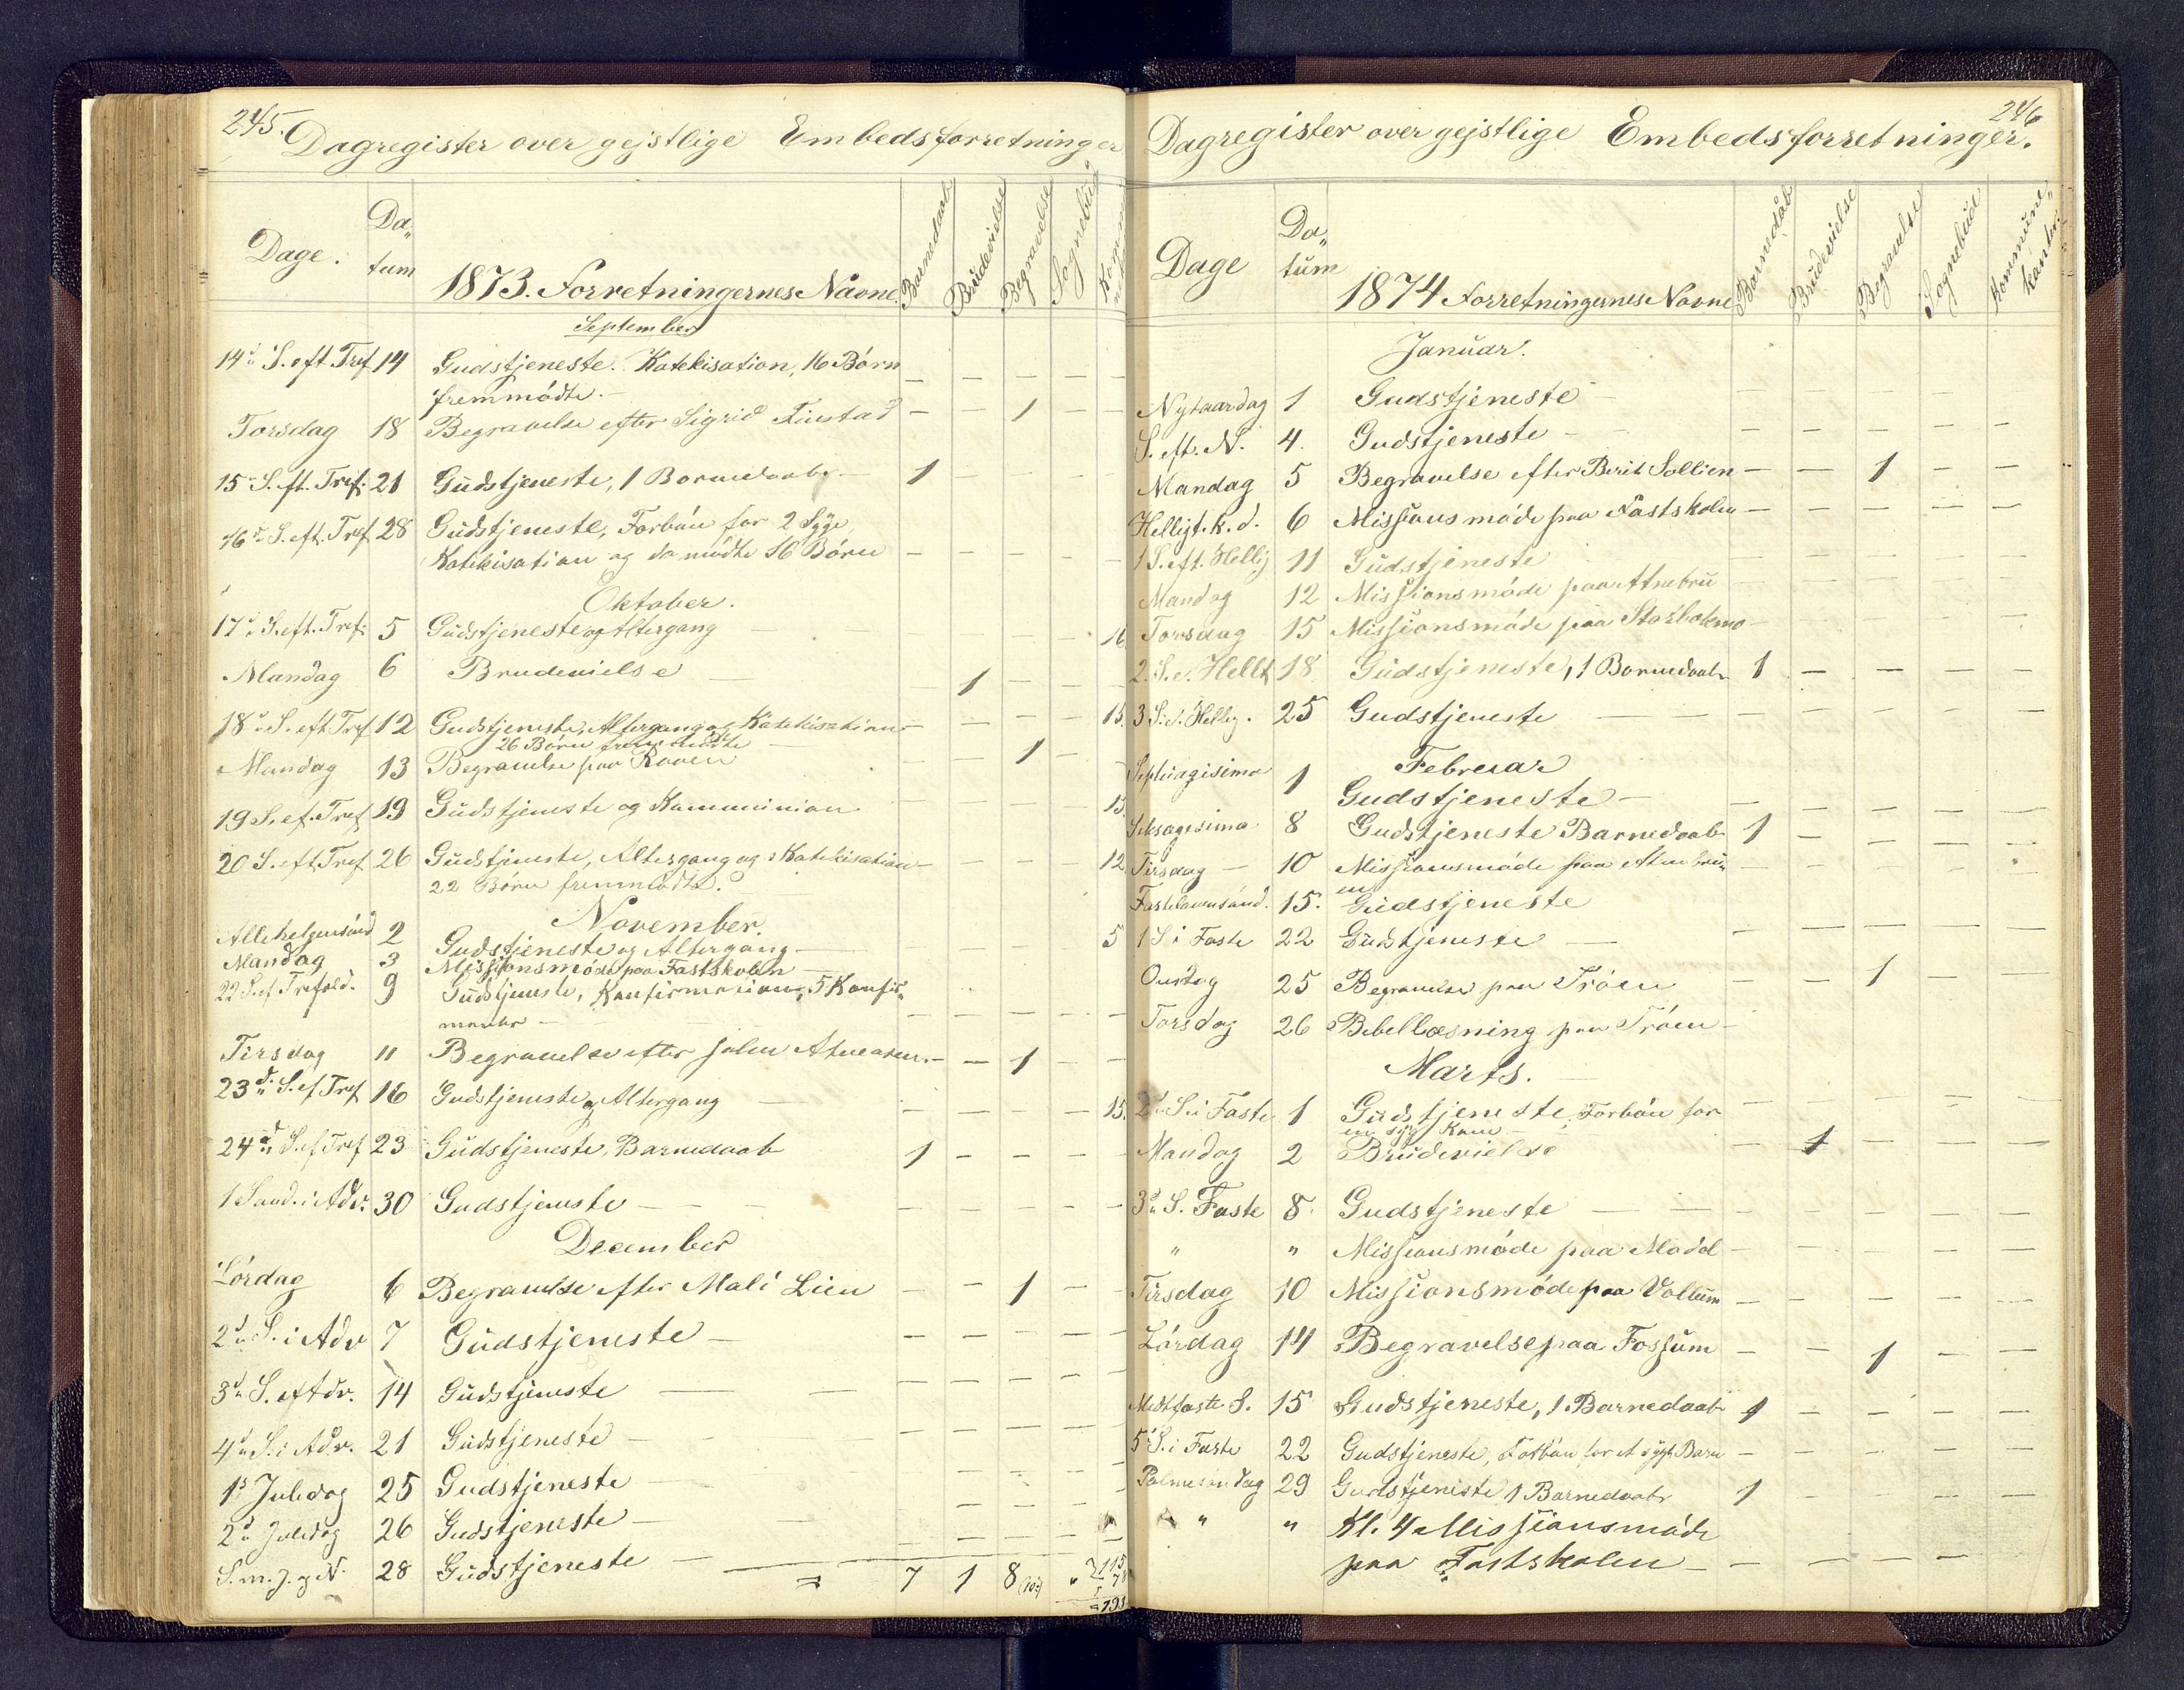 245.
Dagregister over gejstlige Embedsforretninger
Dage. Da„tum 1873. Forretningernes Navne Barnedaab Brudevielse Begravelse Sognebud
September
14d S. eft Tref 14 Gudstjeneste. Katekisation, 16 Børn — — — —
fremmødte. —
Torsdag 18 Begravelse efter Sigrid Finstad — — 1 — —
15 S. ft. Tref. 21 Gudstjeneste, 1 Barnedaab. 1 — — — —
16d S. eft. Tref 28 Gudstjeneste, Forbøn for 2 Syge
Katekisation og da mødte 16 Børn — — — — —
Oktober.
17d S. eft. Tref. 5 Gudstjeneste og Altergang — — — — 16
Mandag 6 Brudevielse — 1 — —
18d S. eft Tref 12 Gudstjeneste, Altergang og Katekisation — — — — 15.
26 Børn fremmødte
Mandag 13 Begravelse paa Kroken — — 1 —
19 S. ef. Tref 19 Gudstjeneste og Kommunion — — — — 13.
20 S. eft. Tref 26 Gudstjeneste, Altergang og Katekisation — — — — 12
22 Børn fremmødte.
November.
Allehelgensønd 2 Gudstjeneste og Altergang — 5
Mandag 3 Missionsmøde paa Fastskolen —
22 S. ef Trefold. 9 Gudstjeneste, Konfirmation, 5 Konfir„
manter — — — — — —
Tirsdag 11 Begravelse efter John Atneosen. — — 1 — —
23d S. ef Tref 16 Gudstjeneste og Altergang — — — — 15.
24d S. ef Tref 23 Gudstjeneste, Barnedaab 1 — — — —
1 Sønd. i Adv. 30 Gudstjeneste — — — — — —
December
Lørdag 6 Begravelse efter Mali Lien — — 1 — —
2d S. i Adv 7 Gudstjeneste — — — — — —
3d S. ef Adv. 14 Gudstjeneste — — — — — —
4d S. i Adv. 21 Gudstjeneste — — — — —
1s Juledag 25 Gudstjeneste — — — —
2d Juledag 26 Gudstjeneste — — — — —
S. m. J. og N. 28 Gudstjeneste — = 7 1 8 „ 115
78
193
246
Dagregister over gejstlige Embedsforretninger.
Dage Da„tum 1874 Forretningernes Navne Barnedåb Brudevielse Begravelse Sognebud Kommunikanter
Januar.
Nytaardag 1 Gudstjeneste — — — — —
S. eft. N. 4. Gudstjeneste — — — — — —
Mandag 5 Begravelse efter Berit Sollien — — 1 — —
Helligt. k. d. 6 Missionsmøde paa Fastskolen — — — — —
1 S. eft. Hellig 11 Gudstjeneste — — — — —
Mandag 12 Missionsmøde paa Atnebru — — — — —
Torsdag 15 Missionsmøde paa Storbekmo — — — — —
2. S. e. Hellt 18 Gudstjeneste, 1 Barnedaab 1 — — — —
3 S. e. Hellig. 25 Gudstjeneste — — — — — —
Februar
Septuagisima 1 Gudstjeneste — — — — — —
Seksagesima 8 Gudstjeneste Barnedaab 1 — — — —
Tirsdag — 10 Missionsmøde paa Atnebru„ — — — — —
en
Fastelavnsønd. 15. Gudstjeneste
1 S. i Faste 22 Gudstjeneste — — — — — —
Onsdag 25 Begravelse paa Trøen — — 1 —
Torsdag 26 Bibellæsning paa Trøen —
Marts.
2d S. i Faste 1 Gudstjeneste, Forbøn for — — — — —
en syg Kone —
Mandag 2 Brudevielse — 1 — — —
3d S. Faste 8. Gudstjeneste — — — — — —
„ „ Missionsmøde paa Modd — — — — —
Tirsdag 10 Missionsmøde paa Vollum — — — — —
Lørdag 14 Begravelse paa Fossum — — 1 — —
Midtfaste S. 15 Gudstjeneste, 1 Barnedaab 1 — — — —
5 S. i Faste 22 Gudstjeneste, Forbøn for et sygt Barn — — — — —
Palmesøndag 29 Gudstjeneste 1 Barnedaab 1 — — — —
„ „ Kl. 4 Missionsmøde
paa Fastskolen — — — — —